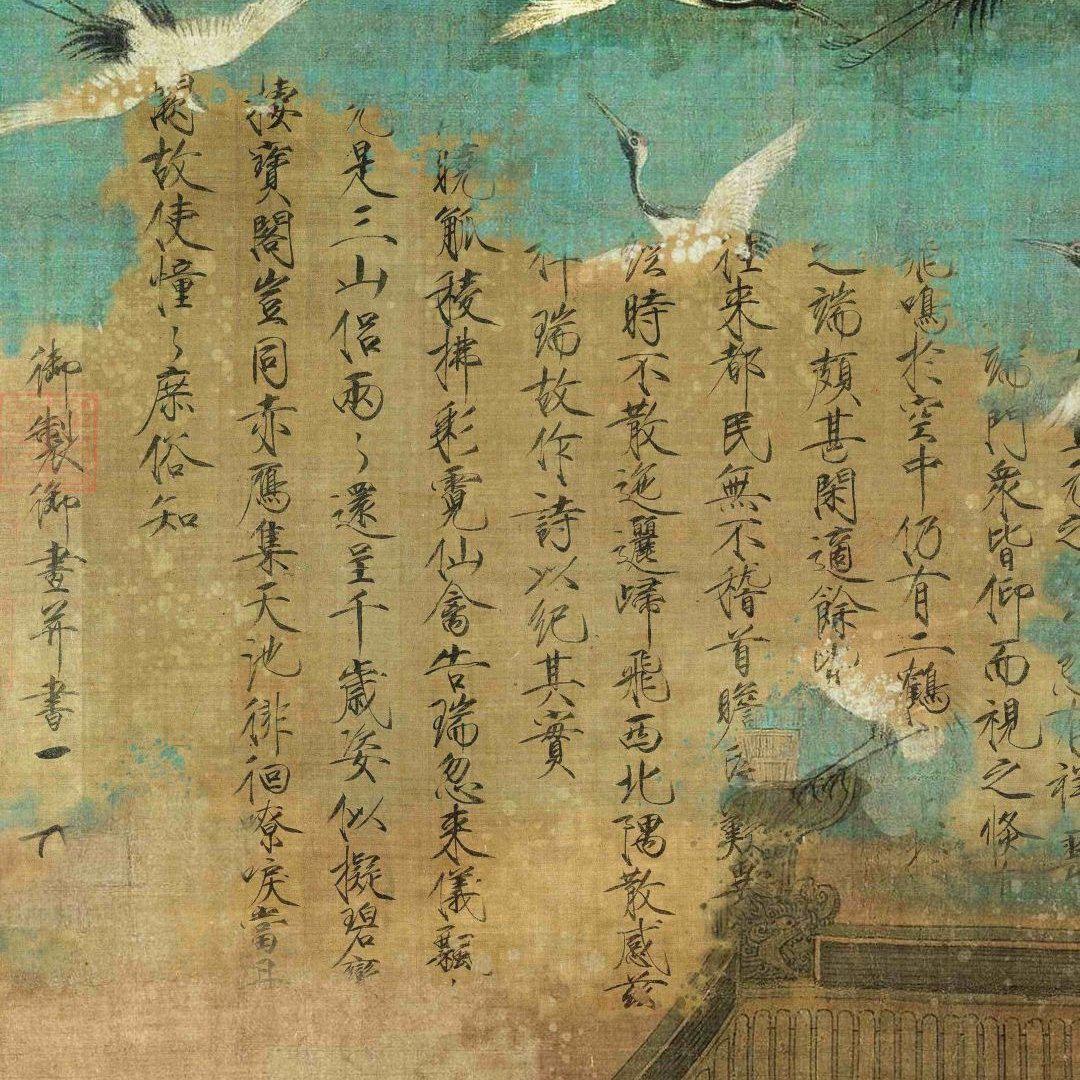 元之
端門衆皆仰而視之倏
飛鳴於空中仍有二鶴
之端頗甚閑適餘皆
往來都民無不稽首瞻
經時不散迤邐歸飛西北隅散感茲
祥瑞故作詩以紀其實
曉觚稜拂彩霓仙禽告瑞忽來儀飄〻
元是三山侶兩〻還呈千歲姿似擬碧鸞
棲寶閣豈同赤鴈集天池徘徊嘹唳當丹
闕故使憧〻庶俗知
御製御畫并書